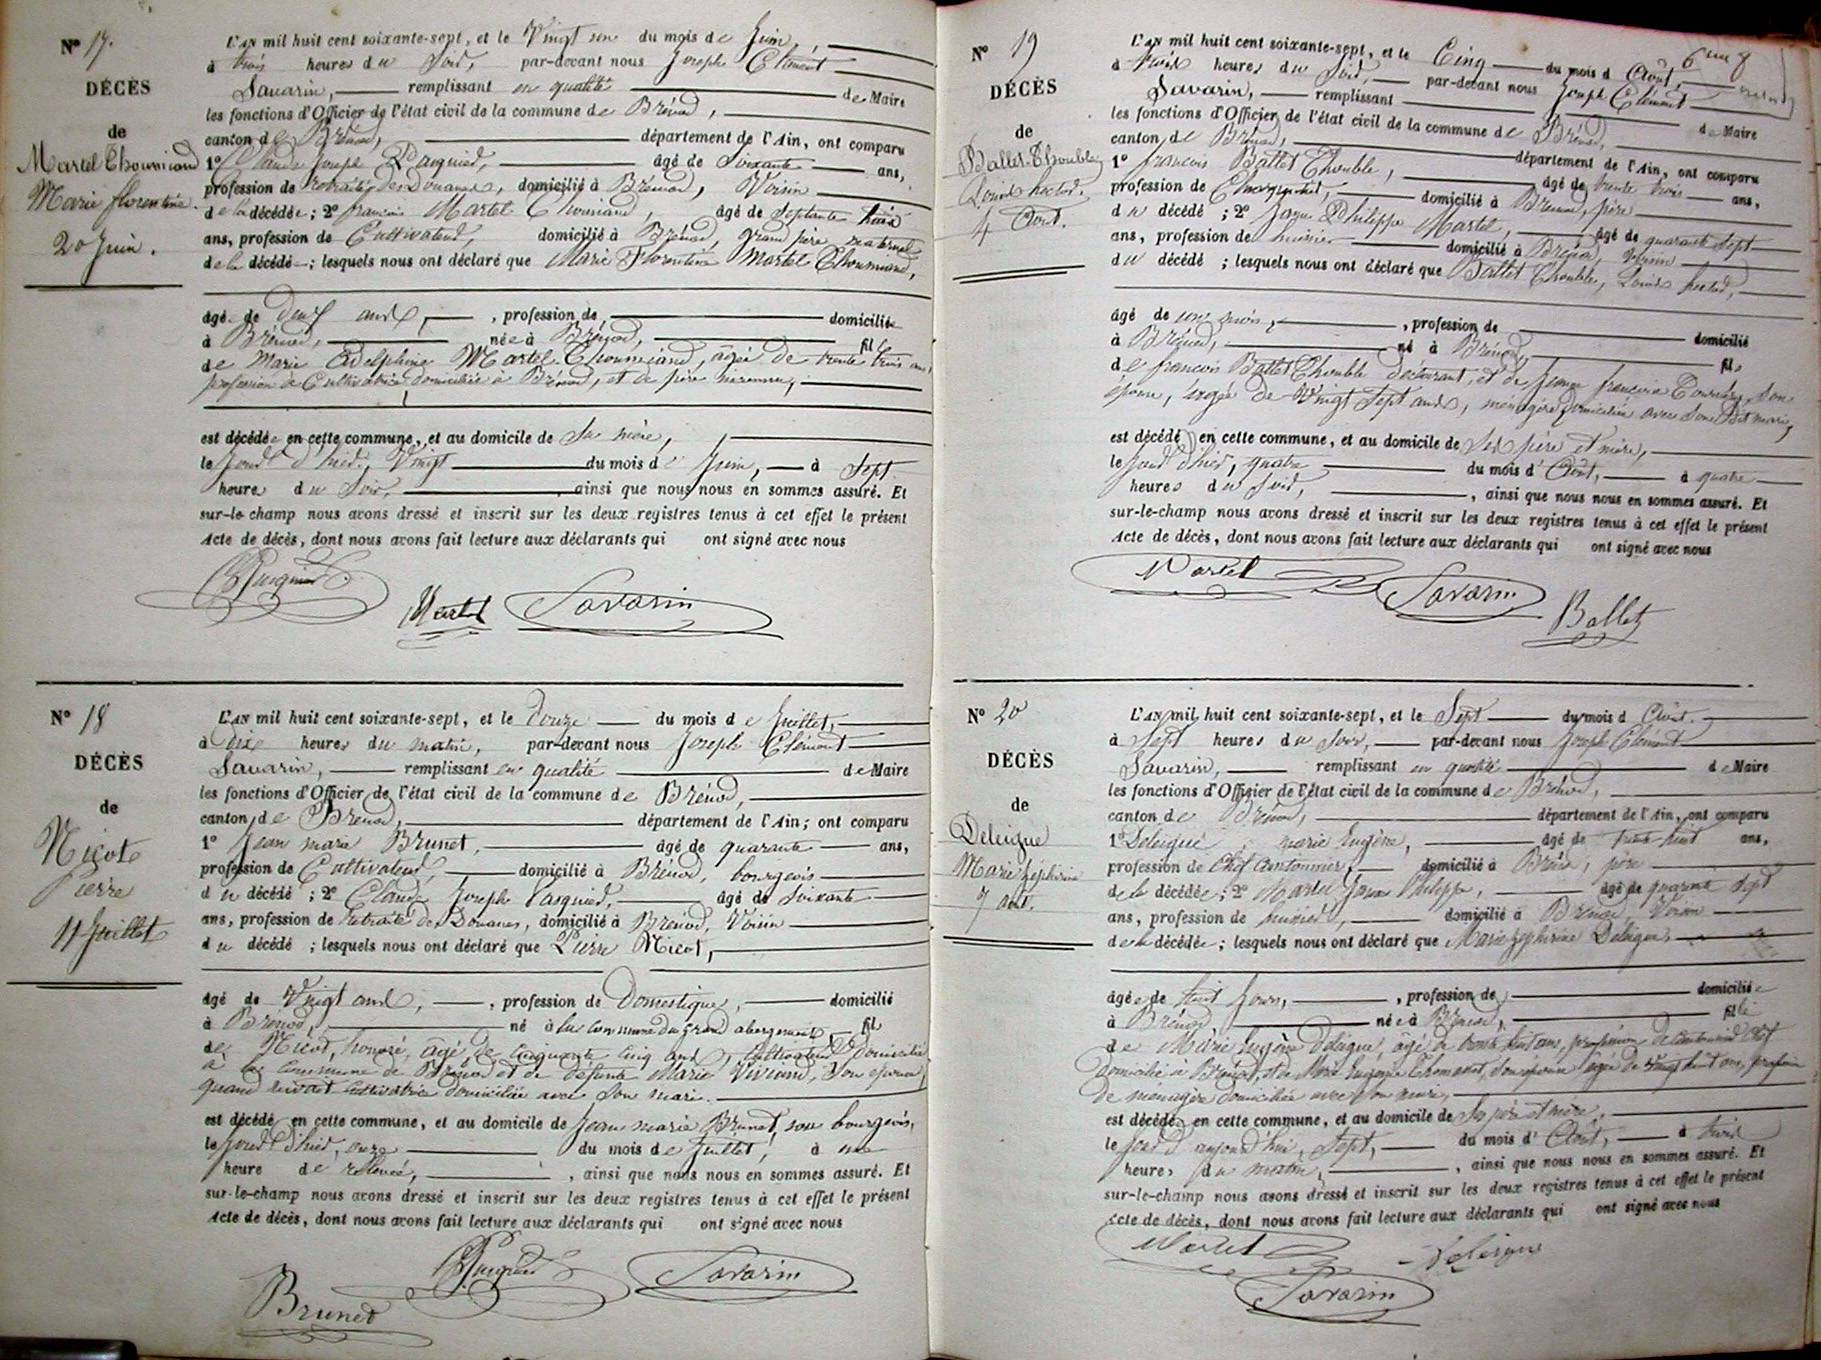 N° 17.
DÉCÈS
de
Martel Thoumiand
Marie florentine
20 Juin.
L'AN mil huit cent soixante-sept, et le Vingt un du mois de Juin,
à trois heures du Soir, par-devant nous Joseph Clément
Savarin, remplissant en qualité de Maire
les fonctions d'Officier de l'état civil de la commune de Brénod,
canton de Brénod, département de l'Ain, ont comparu
1° Claude Joseph Pasquied, âgé de Soixante ans,
profession de retraité des Douanes, domicilié à Brénod, Voisin
de la décédée ; 2° françois Martel Thoumiand, âgé de Septante huit
ans, profession de Cultivateur, domicilié à Brénod, grand père maternel
de la décédée ; lesquels nous ont déclaré que Marie Florentine Martel Thoumiand,
âgée de Deux ans, , profession de, domiciliée
à Brénod, née à Brénod, fille
de Marie Adelphine Martel Thoumiand, âgée de trente trois ans
profession de Cultivatrice domiciliée à Brénod, et de père inconnu,
est décédée en cette commune, et au domicile de Sa mère,
le Jour d'hier, Vingt du mois de Juin, à Sept
heures du Soir, ainsi que nous nous en sommes assuré. Et
sur-le-champ nous avons dressé et inscrit sur les deux registres tenus à cet effet le présent
Acte de décès, dont nous avons fait lecture aux déclarants qui ont signé avec nous
Martel Savarin
N° 18
DÉCÈS
de
Nicot
Pierre
11 Juillet
L'AN mil huit cent soixante-sept, et le Douze du mois de Juillet,
à Dix heures du matin, par-devant nous Joseph Clément
Savarin, remplissant en qualité de Maire
les fonctions d'Officier de l'état civil de la commune de Brénod,
canton de Brénod, département de l'Ain; ont comparu
1° Jean marie Brunet, âgé de quarante ans,
profession de Cultivateur, domicilié à Brénod, bourgeois
du décédé ; 2° Claude Joseph Pasquied, âgé de Soixante
ans, profession de retraité des Douanes, domicilié à Brénod, Voisin
du décédé ; lesquels nous ont déclaré que Pierre Nicot,
âgé de Vingt ans, , profession de Domestique, domicilié
à Brénod, né à la Commune du grand abergement fils
de Nicot, honoré, âgé de Cinquante Cinq ans, Cultivateur domicilié
à la Commune de Brénod et de défunte Marie Viviand, Son épouse,
quand vivait Cultivatrice domiciliée avec Son mari.
est décédé en cette commune, et au domicile de Jean marie Brunet, son bourgeois,
le Jour d'hier, onze du mois de Juillet, à une
heure de relevée, , ainsi que nous nous en sommes assuré. Et
sur-le-champ nous avons dressé et inscrit sur les deux registres tenus à cet effet le présent
Acte de décès, dont nous avons fait lecture aux déclarants qui ont signé avec nous
Savarin
Brunet
N° 19
DÉCÈS
de
Ballet-Thouble
Louis hector.
4 Août.
L'AN mil huit cent soixante-sept, et le Cinq du mois d'Août,
à trois heures du Soir, par-devant nous Joseph Clément
Savarin, remplissant de Maire
les fonctions d'Officier de l'état civil de la commune de Brénod,
canton de Brénod, département de l'Ain, ont comparu
1° françois Ballet Thouble, âgé de trente trois ans,
profession de Charpentier, domicilié à Brénod, père
du décédé ; 2° Jaque Philippe Martel, âgé de quarante Sept
ans, profession de huissier domicilié à Brénod, voisin
du décédé ; lesquels nous ont déclaré que Ballet Thouble, Louis hector,
âgé de un mois, , profession de domicilié
à Brénod, né à Brénod, fils
de françois Ballet Thouble déclarant, et de Jeanne françoise Son
épouse, âgée de Vingt Sept ans, ménagère domiciliée avec Son dit mari,
est décédé en cette commune, et au domicile de Ses père et mère,
le Jour d'hier, quatre du mois d'Août, à quatre
heures du Soir, , ainsi que nous nous en sommes assuré. Et
sur-le-champ nous avons dressé et inscrit sur les deux registres tenus à cet effet le présent
Acte de décès, dont nous avons fait lecture aux déclarants qui ont signé avec nous
Martel Savarin
Ballet
N° 20
DÉCÈS
de
Deleigue
Marie Zéphirine
7 août.
L'AN mil huit cent soixante-sept, et le Sept du mois d'Août.
à Sept heures du Soir, par-devant nous Joseph Clément
Savarin, remplissant en qualité de Maire
les fonctions d'Officier de l'état civil de la commune de Brénod,
canton de Brénod, département de l'Ain, ont comparu
1° Deleigue marie Eugène, âgé de trente huit ans,
profession de Chef Cantonnier, domicilié à Brénod, père
de la décédée ; 2° Martel Jaque Philippe, âgé de quarante Sept
ans, profession de huissier, domicilié à Brénod, Voisin
de la décédée ; lesquels nous ont déclaré que Marie Zéphirine Deleigue,
âgée de huit Jours, , profession de domiciliée
à Brénod, née à Brénod, fille
de Marie Eugène Deleigue, âgé de trente huit ans, profession de Cantonnier Chef
Domicilié à Brénod, et de Marie Eugénie Thomasset, Son épouse âgée de Vingt huit ans, profession
De ménagère domiciliée avec Son mari,
est décédée en cette commune, et au domicile de Ses père et mère,
le Jour d'aujourd'hui, Sept, du mois d'Août, à trois
heures du matin, , ainsi que nous nous en sommes assuré. Et
sur-le-champ nous avons dressé et inscrit sur les deux registres tenus à cet effet le présent
Acte de décès, dont nous avons fait lecture aux déclarants qui ont signé avec nous
Martel Deleigue
Savarin